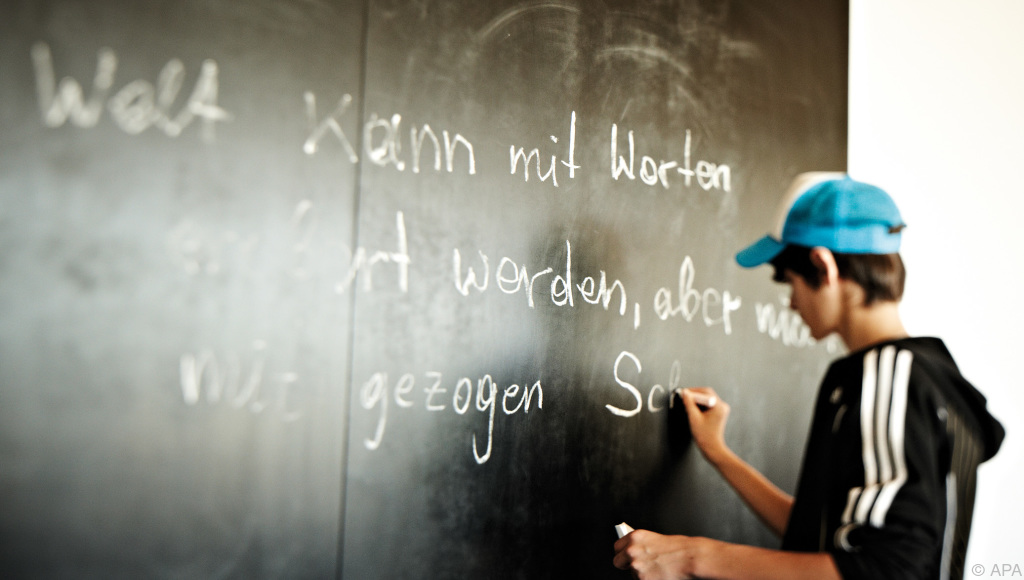 Welt kann mit Worten
werden, aber
gezogen Sch
© APA